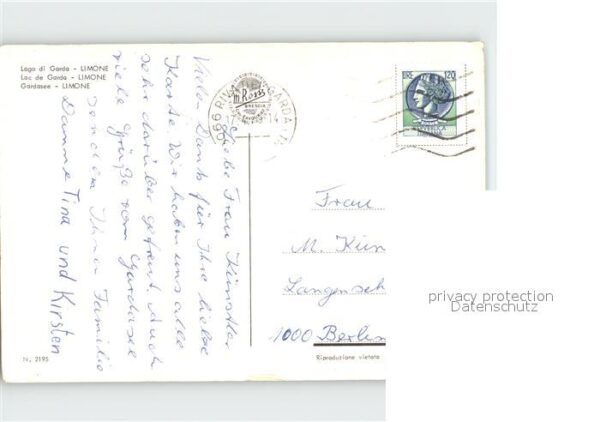 Lago di Garda - LIMONE
Lac de Garda - LIMONE
Gardasee - LIMONE
LIRE 120
RIVA GARDA
BRESCIA
Liebe Frau Künstler
Vielen Dank für Ihre liebe
Karte. Wir haben uns alle
sehr darüber gefreut. Auch
viele Grüße vom Gardasee
von dem Ihna Familie
Damme Tina und Kirsten
Frau
M. Kün
Langensch
1000 Berlin
privacy protection
Datenschutz
N. 2195
Riproduzione vietata